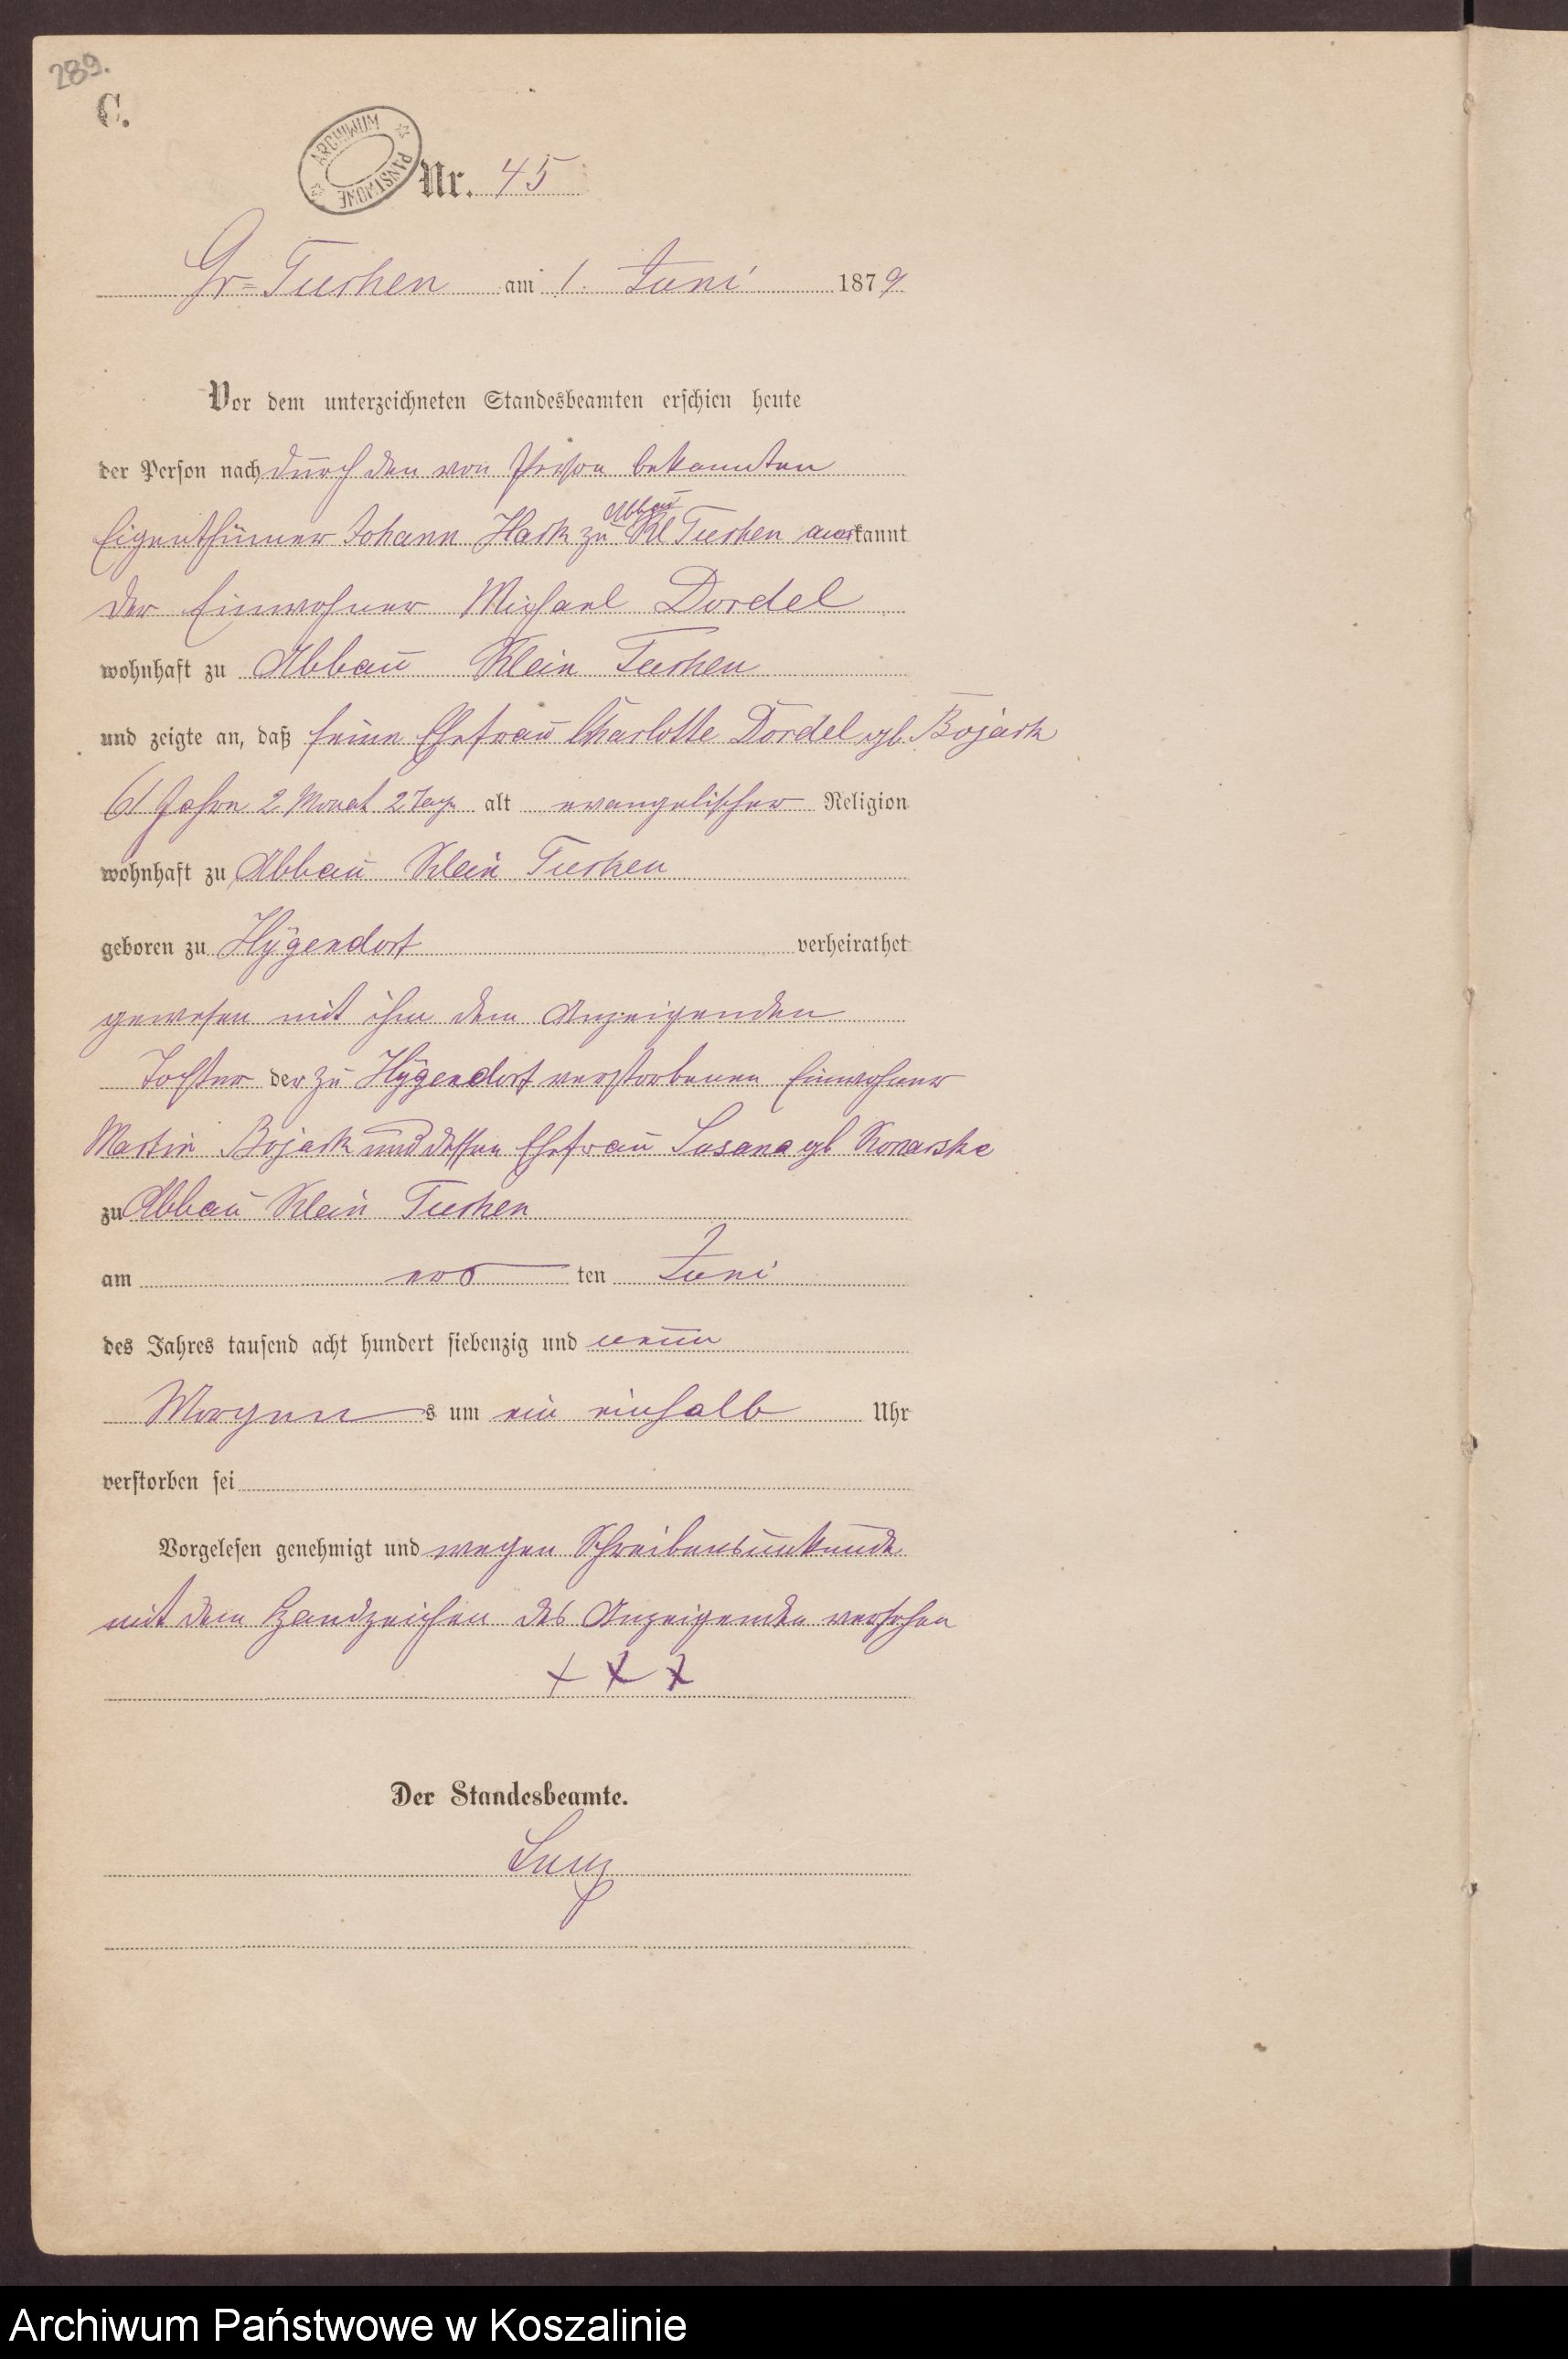 289.
C.
ARCHIWUM PAŃSTWOWE
Nr. 45
Gr= Tuchen am 1. Juni 1879
Vor dem unterzeichneten Standesbeamten erschien heute
der Person nach durch den von Person bekannten
Abbau
Eigenthümer Johann Hack zu Kl Tuchen anerkannt
der Einwohner Michael Dordel
wohnhaft zu Abbau Klein Tuchen
und zeigte an, daß seine Ehefrau Charlotte Dordel gb. Bojack
61 Jahre 2 Monat 2 Tage alt evangelischer Religion
wohnhaft zu Abbau Klein Tuchen
geboren zu Hÿgendorf verheirathet
gewesen mit ihm dem Anzeigenden
Tochter der zu Hÿgendorf verstorbenen Einwohner
Martin Bojack und dessen Ehefrau Susana gb
zu Abbau Klein Tuchen
am ers ten Juni
des Jahres tausend acht hundert siebenzig und neun
Morgens um ein einhalb Uhr
verstorben sei
Vorgelesen genehmigt und wegen Schreibensunkunde
mit dem Handzeichen des Anzeigenden versehen
+ + +
Der Standesbeamte.
Archiwum Państwowe w Koszalinie